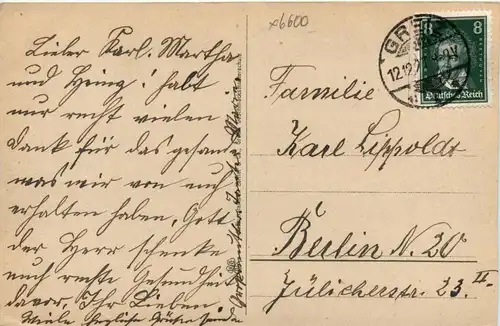 x6600
Lieber Karl, Martha
und Heinz! habt
nur recht vielen
Dank für das gesandte
was wir von euch
erhalten haben, Gott
der Herr schenke
euch rechte Gesundheit
davor, Ihr Lieben
Viele herzliche Grüße
8 8
Deutsches Reich
GREI
12.12.2
Familie
Karl Lippoldt
Berlin N. 20
Jülicherstr. 23. II.